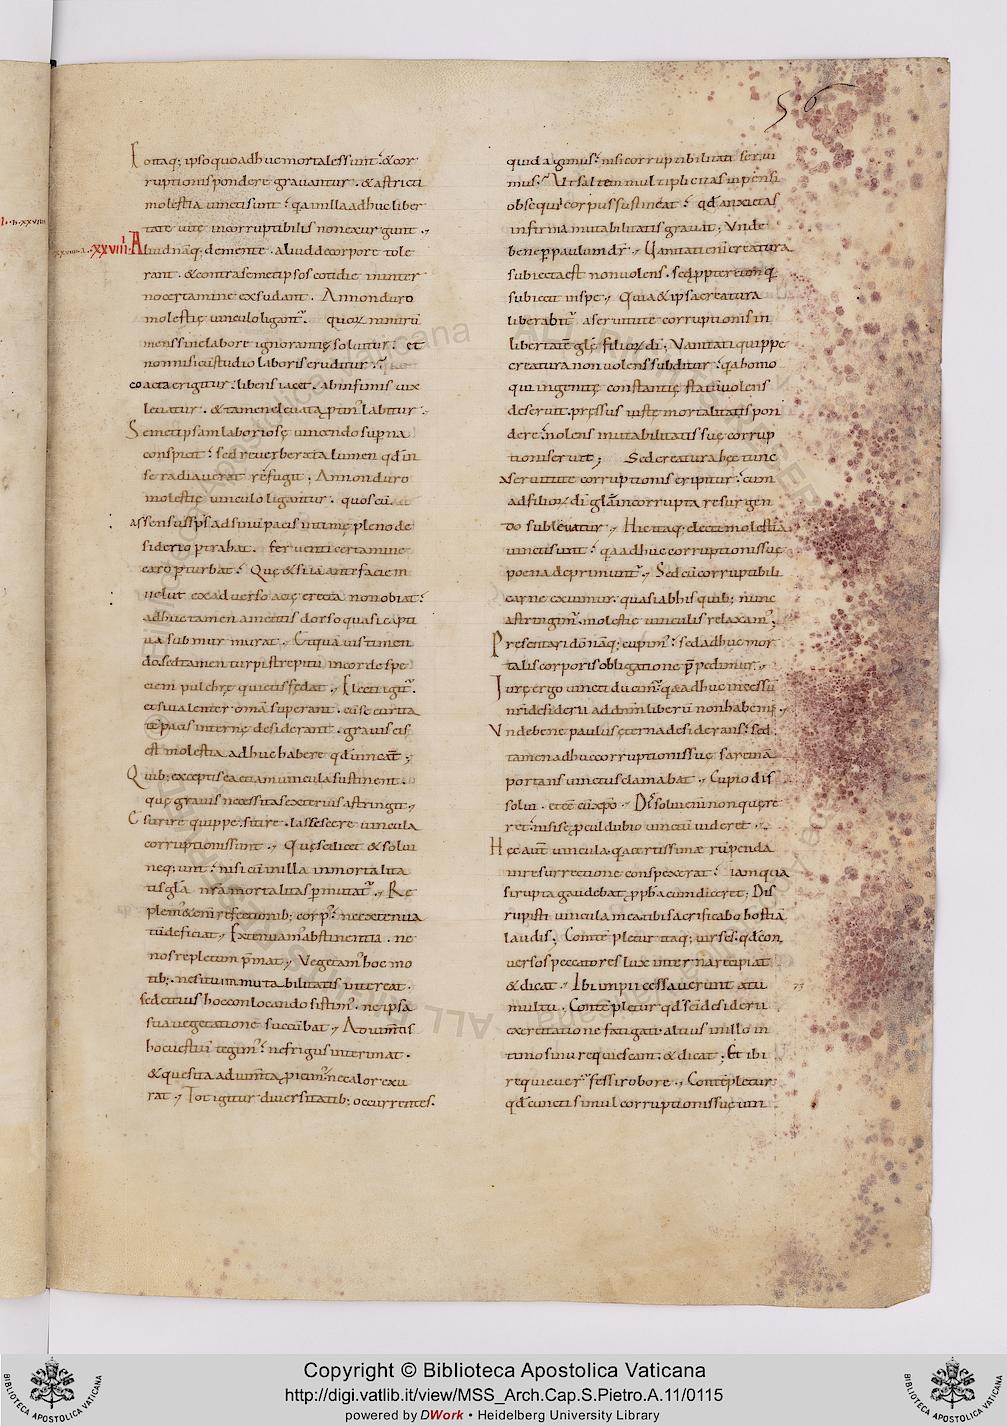 56
Eo itaq; ipso quo adhuc mortales sunt: & cor
ruptionis pondere gravantur. & astricti
molestia vincti sunt: qa in illa adhuc liber
tate vitę incorruptibilis non exurgunt.
xxviii. Aliud nāq. de mente. aliud de corpore tole
rant. & contra semetipsos cotidie in inter
no certamine exsudant. An non duro
molestię vinculo ligant᷑. quoꝝ nimirū
mens sine labore ignorantię solvitur: et
non nisi cū studio laboris eruditur.
coacta erigitur: libens iacet. ab infimis vix
levatur. & tamen elevata ptin᷑ labitur.
Semetipsam laboriose vincendo supna
conspicit: sed reverberata lumen qd in
se radiaverat refugit. An non duro
molestię vinculo ligantur. quos cū
assensus sps ad sinū pacis intimę pleno de
siderio ptrahat. ferventi certamine
caro pturbat: Quę & si iā ante faciem
velut ex adverso acię erecta non obiat:
adhuc tamen a mentis dorso quasi capti
va submurmurat. Et quāvis timen
do. sed tamen turpi strepitu in corde spe
ciem pulchrę quietis fędat. Electi igit᷑.
etsi valenter omā superant. cū secūrita
tē pacis internę desiderant. gravis eis
est molestia adhuc habere qd vincant;
Quib; exceptis ea etiam vincula sustinent.
quę gravis necessitas exterius astringit.
Esurire quippe. sitire. lassescere vincula
corruptionis sunt. Quę scilicet & solvi
neq;unt: nisi cū in illa inmortalita
tis gła nrā mortalitas pmutat᷑. Re
plem᷑ & eni refectionib; corp᷑: ne extenua
tū deficiat. Extenuam᷑ abstinentia. ne
nos repletum pmat. Vegetam᷑ hoc mo
tib;. ne situ inmutabilitatis intereat.
sed citius hoc conlocando sistim᷑. ne ipsa
sua vegetatione succūbat. Adivm̄tis
hoc vestiū tegim᷑: ne frigus interimat.
& quesita adivm̄ta picim᷑. ne calor exu
rat. Tot igitur diversitatib; occurrentes.
quid agimus: nisi corruptibilitati servi
mus. Ut saltem multiplicitas inpensi
obsequi corpus sustineat: qd anxietas
infirma mutabilitatis gravat; Unde
bene p paulum dr. Vanitati eni creatura
subiecta est non volens. sed ppter eum q
subiecit in spe. Quia & ipsa creatura
liberabit᷑ a servitute corruptionis in
libertatē glę filioꝝ di; Vanitati quippe
creatura non volens subditur: qa homo
qui ingenitę constantię statū volens
deseruit. pressus iustę mortalitatis pon
dere: nolens mutabilitatis suę corrup
tioni servit; Sed creatura hęc tunc
a servitute corruptionis eripitur: cum
ad filioꝝ di glam incorrupta resurgen
do sublevatur. Hic itaq; electi molestia
vincti sunt: qa adhuc corruptionis suę
poena deprimunt᷑. Sed cū corruptibili
carne exuimur. quasi ab his quib; nunc
astringim᷑. molestię vinculis relaxam᷑;
Presentari do nāq; cupim᷑: sed adhuc mor
talis corporis obligatione ppedimur.
Iure ergo vincti dicim᷑: qa adhuc incessū
nri desiderii ad dnm liberū non habem᷑.
Unde bene paulus ęterna desiderans: sed
tamen adhuc corruptionis suę sarcinā
portans vinctus clamabat. Cupio dis
solvi. et eē cū xpo. Dissolvi eni non quęre
ret. nisi se pculdubio vinctū videret.
Hęc aut vincula. qa certissimæ rūpenda
in resurrectione conspexerat: iam qua
si rupta gaudebat. ppha cum diceret; Dis
rupisti vincula mea. tibi sacrificabo hostiā
laudis. Contēpletur itaq; vir scs. qd con
versos peccatores lux interna recipiat
& dicat. Ibi impii cessaverunt a tu
multu. Contēpletur qd sci desiderii
exercitatione fatigati. altius in illo in
timo sinu requiescant. & dicat; Et ibi
requiever᷑ fessi robore. Contēpletur
qd cuncti simul corruptionis suę vin
Copyright © Biblioteca Apostolica Vaticana
http://digi.vatlib.it/view/MSS_Arch.Cap.S.Pietro.A.11/0115
powered by DWork • Heidelberg University Library
BIBLIOTECA APOSTOLICA VATICANA
BIBLIOTECA APOSTOLICA VATICANA